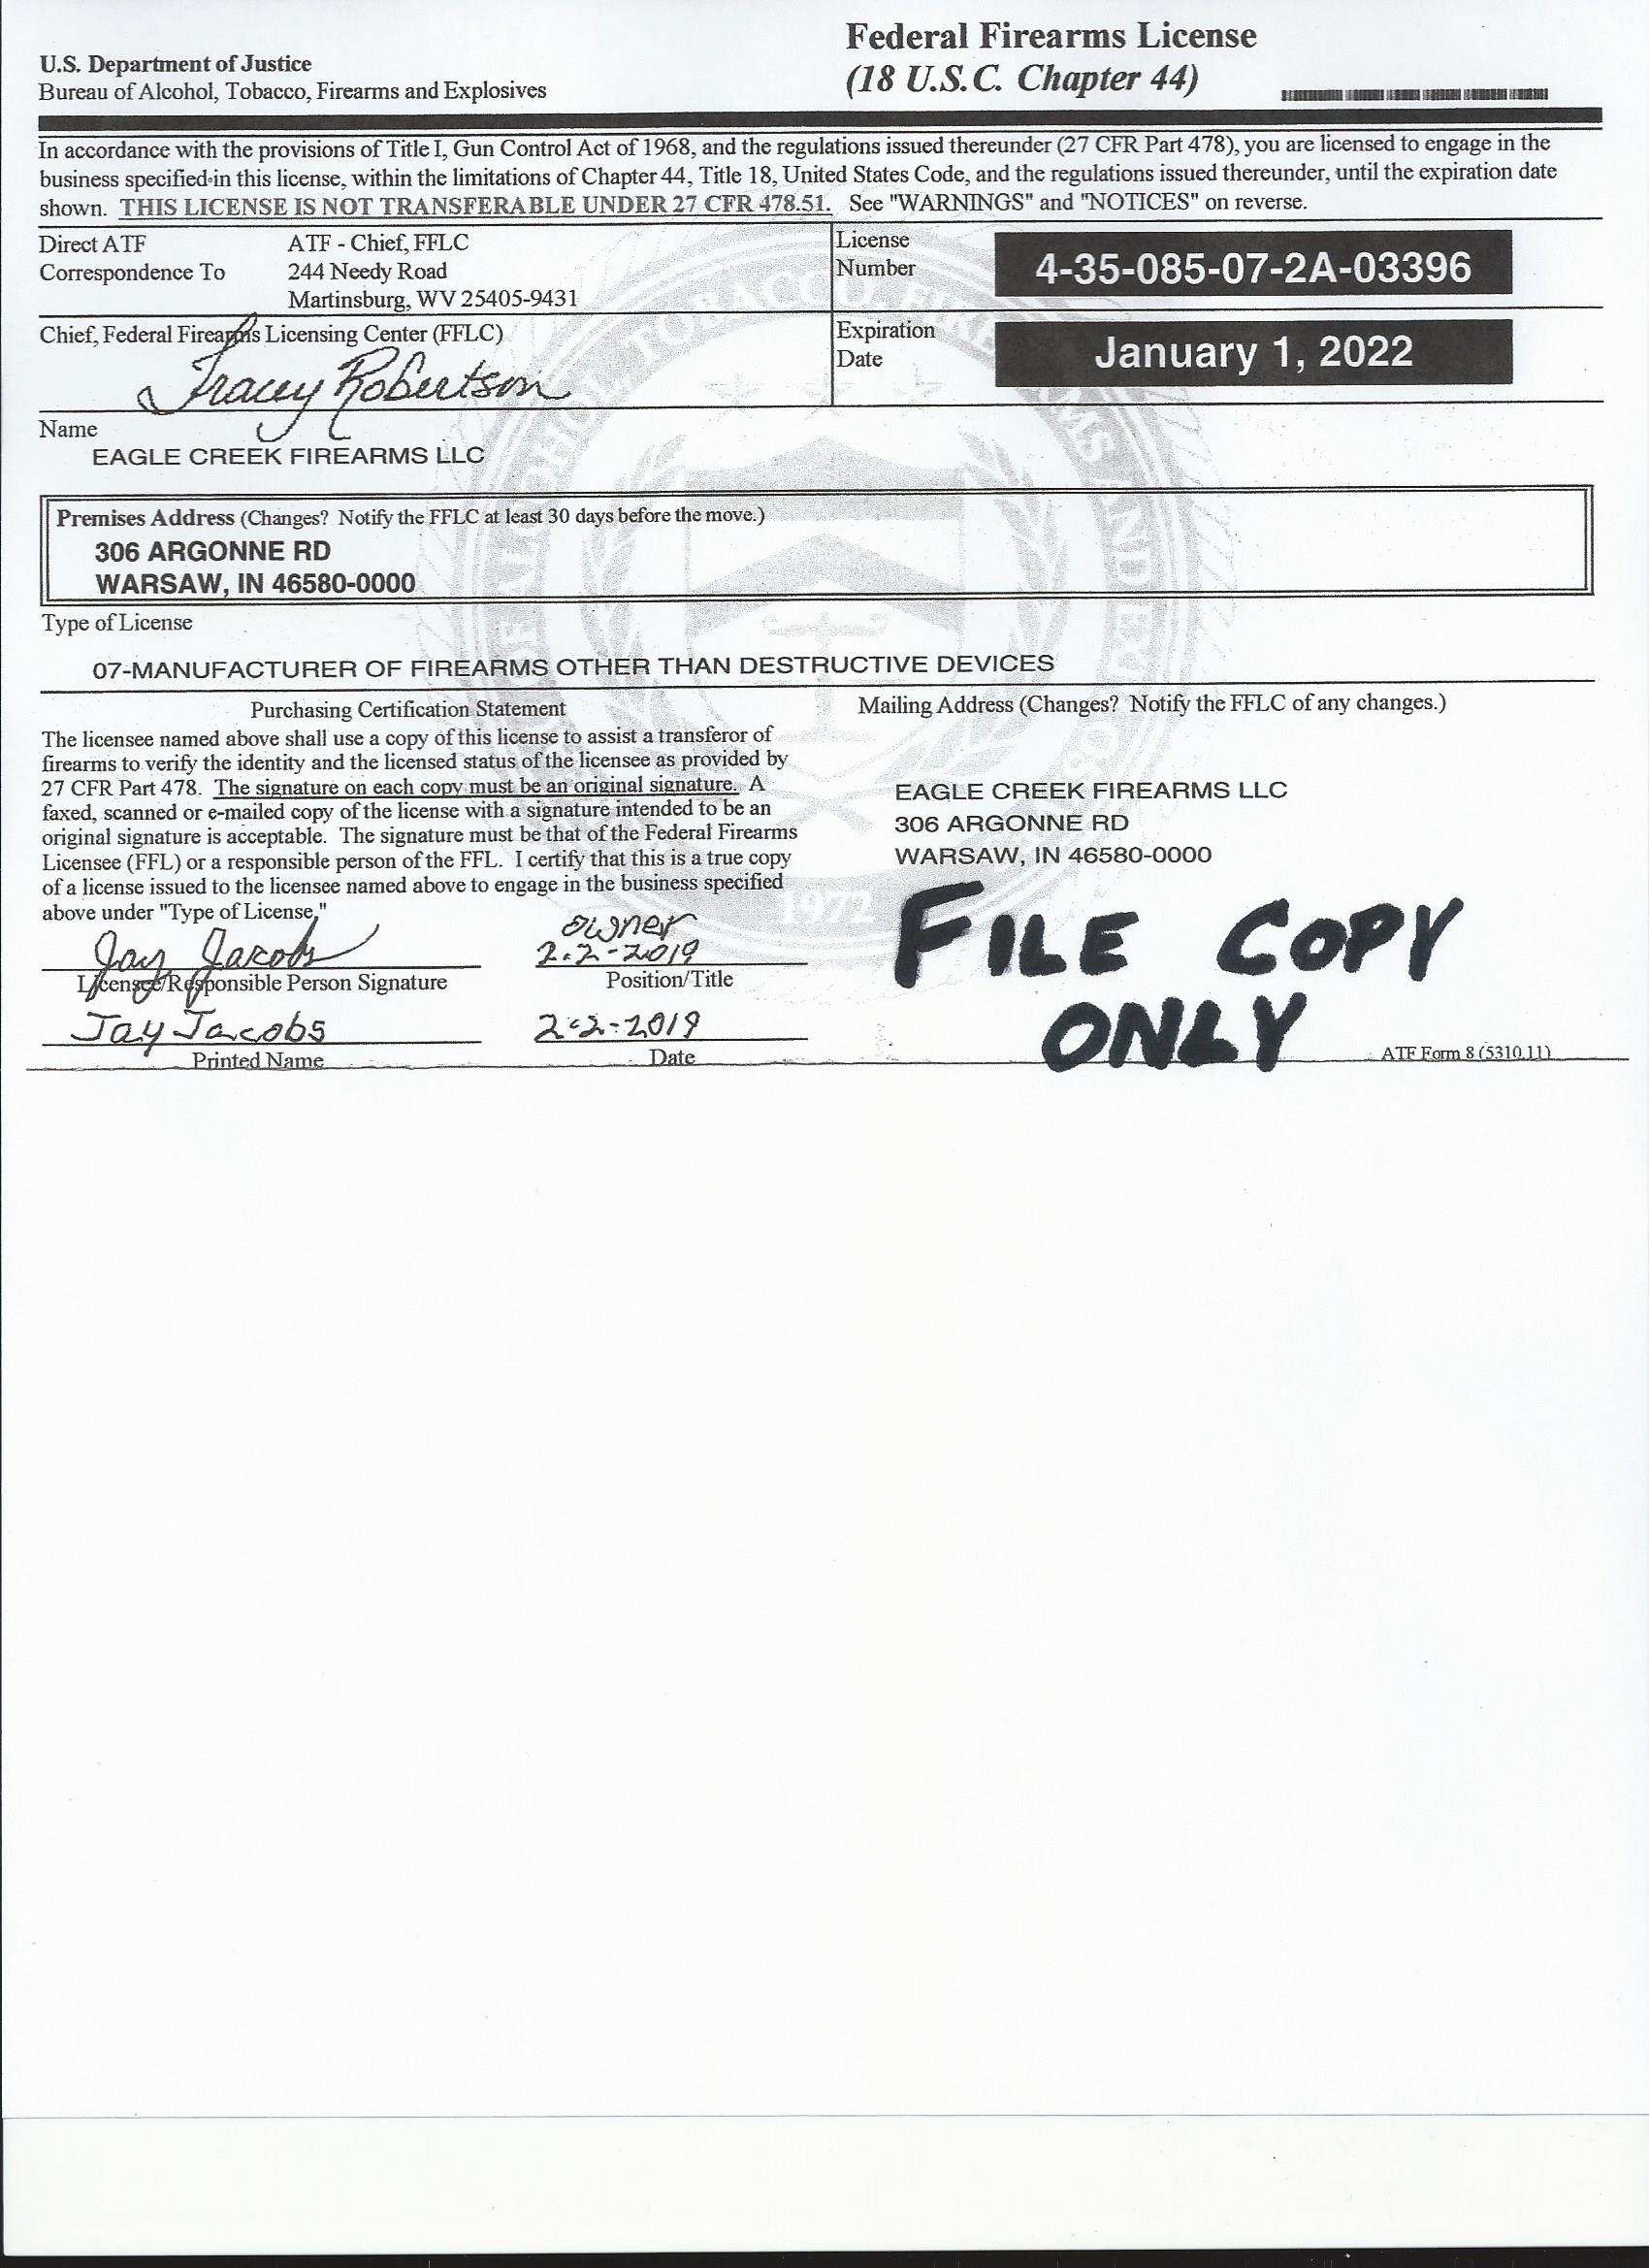 U.S. Department of Justice
Bureau of Alcohol, Tobacco, Firearms and Explosives
Federal Firearms License
(18 U.S.C. Chapter 44)
In accordance with the provisions of Title I, Gun Control Act of 1968, and the regulations issued thereunder (27 CFR Part 478), you are licensed to engage in the
business specified in this license, within the limitations of Chapter 44, Title 18, United States Code, and the regulations issued thereunder, until the expiration date
shown. THIS LICENSE IS NOT TRANSFERABLE UNDER 27 CFR 478.51. See "WARNINGS" and "NOTICES" on reverse.
Direct ATF
Correspondence To
ATF - Chief, FFLC
244 Needy Road
Martinsburg, WV 25405-9431
License
Number
4-35-085-07-2A-03396
Chief, Federal Firearms Licensing Center (FFLC)
Tracey Robertson
Expiration
Date
January 1, 2022
Name
EAGLE CREEK FIREARMS LLC
Premises Address (Changes? Notify the FFLC at least 30 days before the move.)
306 ARGONNE RD
WARSAW, IN 46580-0000
Type of License
07-MANUFACTURER OF FIREARMS OTHER THAN DESTRUCTIVE DEVICES
Purchasing Certification Statement
The licensee named above shall use a copy of this license to assist a transferor of
firearms to verify the identity and the licensed status of the licensee as provided by
27 CFR Part 478. The signature on each copy must be an original signature. A
faxed, scanned or e-mailed copy of the license with a signature intended to be an
original signature is acceptable. The signature must be that of the Federal Firearms
Licensee (FFL) or a responsible person of the FFL. I certify that this is a true copy
of a license issued to the licensee named above to engage in the business specified
above under "Type of License."
Jay Jacobs
Licensee/Responsible Person Signature
owner
2-2-2019
Position/Title
Jay Jacobs
Printed Name
2-2-2019
Date
Mailing Address (Changes? Notify the FFLC of any changes.)
EAGLE CREEK FIREARMS LLC
306 ARGONNE RD
WARSAW, IN 46580-0000
FILE COPY
ONLY
ATF Form 8 (5310.11)
1972